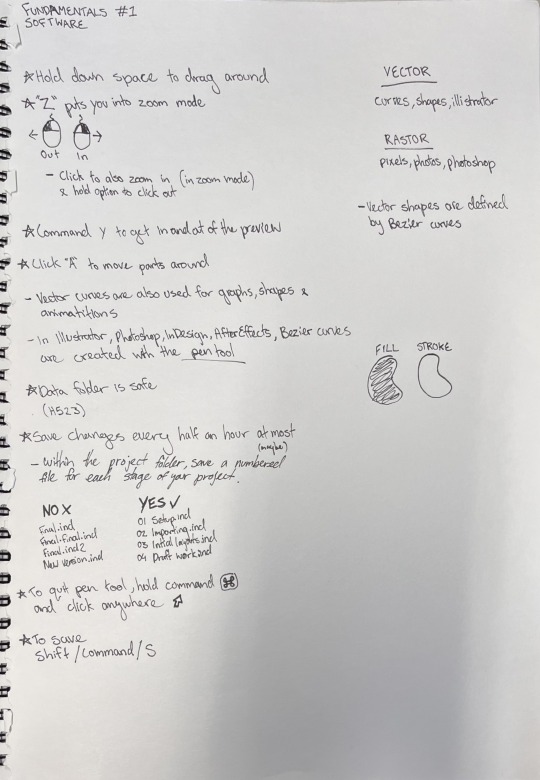 FUNDAMENTALS #1
SOFTWARE
☆Hold down space to drag around
☆"Z" puts you into zoom mode
← →
Out In
- Click to also zoom in (in zoom mode)
& hold option to click out
☆Command Y to get in and out of the preview
☆Click "A" to move parts around
- Vector curves are also used for graphs, shapes &
animatitions
- In Illustrator, Photoshop, InDesign, AfterEffects, Bezier curves
are created with the pen tool
☆Data folder is safe
(H523)
☆Save changes every half an hour at most
(maybe)
- Within the project folder, save a numbered
file for each stage of your project.
NO X
Final.ind
Final-Final.ind
Final.ind2
New version.ind
YES ✓
01 Setup.ind
02 Importing.ind
03 Initial layouts.ind
04 Draft work.ind
☆To quit pen tool, hold command ⌘
and click anywhere
☆To save
Shift/Command/S
VECTOR
Curves, shapes, illistrator
RASTOR
pixels, photos, photoshop
- Vector shapes are defined
by Bezier curves
FILL STROKE